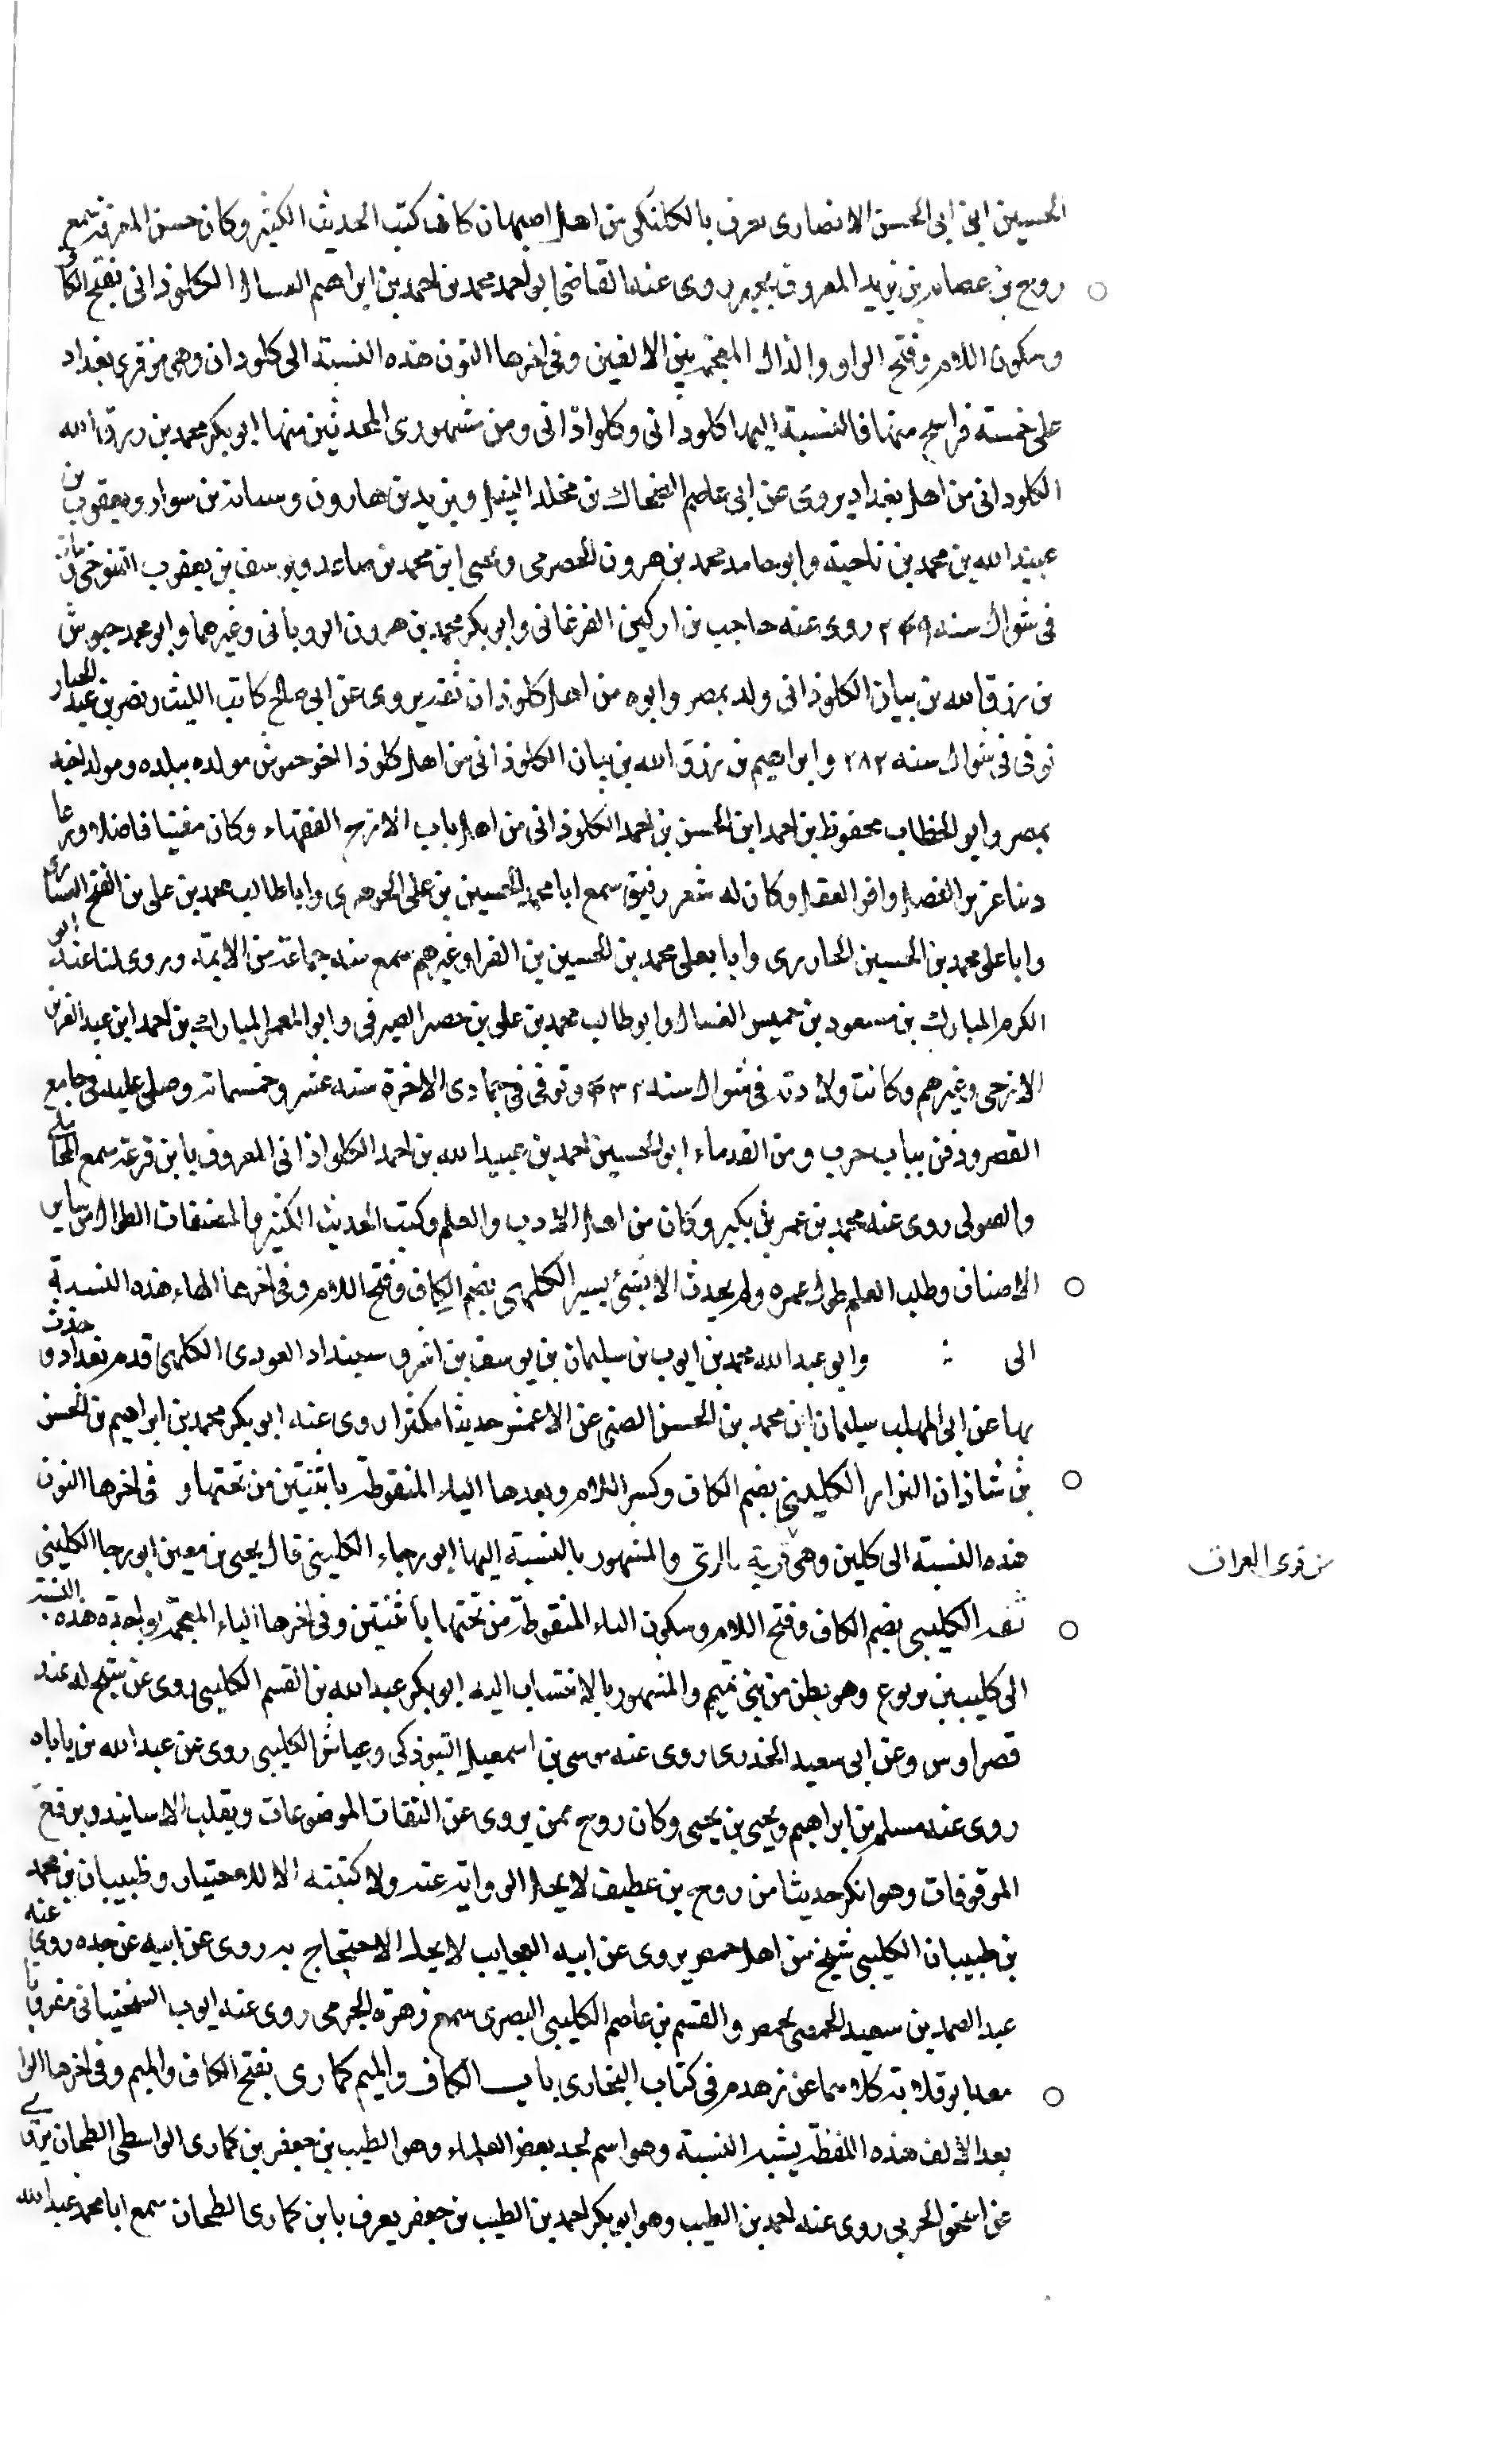 الحسين ابن ابى الحسن الانصارى يعرف بالكلنكى من اهل اصبهان كان كتب الحديث الكثير وكان حسن المعرفة سمع
روح بن عصام بن يزيد المعروف بجبر روى عنه القاضى ابو احمد محمد بن احمد بن ابراهيم العسال الكلوذانى بفتح الكاف
وسكون اللام وفتح الواو والذال المعجمة بين الالفين وفى اخرها النون هذه النسبة الى كلوذان وهى من قرى بغداد
على خمسة فراسخ منها فالنسبة اليها كلوذانى وكلواذانى ومن مشهورى المحدثين منها ابو بكر محمد بن رزق الله
الكلوذانى من اهل بغداد يروى عن ابى عاصم الضحاك بن مخلد النبيل ويزيد بن هارون وشبابة بن سوار ويعقوب بن
عبيد الله بن محمد بن ناجية وابو حامد محمد بن هرون الحضرمى ويحيى ابن محمد بن صاعد ويوسف بن يعقوب التنوخى مات
فى شوال سنه ٢٤٩ روى عنه حاجب بن اركين الفرغانى وابو بكر محمد بن هرون الرويانى وغيرهما وابو محمد حبوش
بن رزق الله بن بيان الكلوذانى ولد بمصر وابوه من اهل كلوذان ثقة يروى عن ابى صالح كاتب الليث ونضر بن عبد الجبار
توفى فى شوال سنه ٢٨٢ وابراهيم بن رزق الله بن بيان الكلوذانى من اهل كلوذا اخو حبوش مولده ببلده ومولد اخيه
بمصر وابو الخطاب محفوظ بن احمد ابن الحسن بن احمد الكلوذانى من اهل باب الازج الفقهاء وكان مفتيا فاضلا ورعا
دينا غزير الفضل وافر العقل وكان له شعر رقيق سمع ابا محمد الحسين بن على الجوهرى وابا طالب محمد بن على بن الفتح العشارى
وابا على محمد بن الحسين الجازرى وابا يعلى محمد بن الحسين بن الفرا وغيرهم سمع منه جماعة من الايمة وروى لنا عنه ابو
الكرم المبارك بن مسعود بن خميس الغسال وابو طالب محمد بن على بن خضير الصيرفى وابو المعمر المبارك بن احمد ابن عبد العزيز
الازجى وغيرهم وكانت ولادته فى شوال سنه ٤٣٢ وتوفى فى جمادى الاخرة سنه عشر وخمسمائة وصلى عليه فى جامع
القصر ودفن بباب حرب ومن القدماء ابو الحسين احمد بن عبيد الله بن احمد الكلواذانى المعروف بابن قرعة سمع المحاملى
والصولى روى عنه محمد بن عمر بن بكير وكان من اهل الادب والعلم وكتب الحديث الكثير والمصنفات الطوال من ساير
الاصناف وطلب العلم طول عمره ولم يحدث الا بشىء يسير الكلهى بضم الكاف وفتح اللام وفى اخرها الهاء هذه النسبة
الى : وابو عبد الله محمد بن ايوب بن سليمان بن يوسف بن العودى الكلهى قدم بغداد وحدث
بها عن ابى المهلب سليمان ابن محمد بن الحسن الضبى عن الاعمش حديثا مكثرا روى عنه ابو بكر محمد بن ابراهيم بن الحسن
بن شاذان البزاز الكلينى بضم الكاف وكسر اللام وبعدها الياء المنقوطة باثنتين من تحتها و فى اخرها النون
هذه النسبة الى كلين وهى قرية بالرى والمشهور بالنسبة اليها ابو رجاء الكلينى قال يحيى بن معين ابو رجا الكلينى
من قرى العراق
ثقة الكليبى بضم الكاف وفتح اللام وسكون الياء المنقوطة من تحتها باثنتين وفى اخرها الباء المعجمة بواحدة هذه النسبة
الى كليب بن يربوع وهو بطن من بنى تميم والمشهور بالانتساب اليه ابو بكر عبد الله بن القسم الكليبى روى عن شيخ له عند
قصر اوس وعن ابى سعيد الخدرى روى عنه موسى بن اسمعيل التبوذكى وعياش الكليبى روى عن عبد الله بن باباه
روى عنه مسلم بن ابراهيم ويحيى بن يحيى وكان روح ممن يروى عن الثقات الموضوعات ويقلب الاسانيد ويرفع
الموقوفات وهو انكر حديثا من روح بن غطيف لا يحل الرواية عنه ولا كتبته الا للاختبار وظبيان بن محمد
بن ظبيان الكليبى شيخ من اهل حمص يروى عن ابيه العجايب لا يحل الاحتجاج به روى عن ابيه عن جده روى عنه
عبد الصمد بن سعيد الحمصى بحمص والقسم بن عاصم الكليبى البصرى سمع زهدم الجرمى روى عنه ايوب السختيانى مقرونا
معه ابو قلابة كلاهما عن زهدم فى كتاب البخارى باب الكاف والميم كمارى بفتح الكاف والميم وفى اخرها الرا
بعد الالف هذه اللفظة يشبه النسبة وهو اسم لجد بعض العلماء وهو الطيب بن جعفر بن كمارى الواسطى الطحان يروى
عن اسحق الحربى روى عنه احمد بن الطيب وهو ابو بكر احمد بن الطيب بن جعفر يعرف بابن كمارى الطحان سمع ابا محمد عبد الله